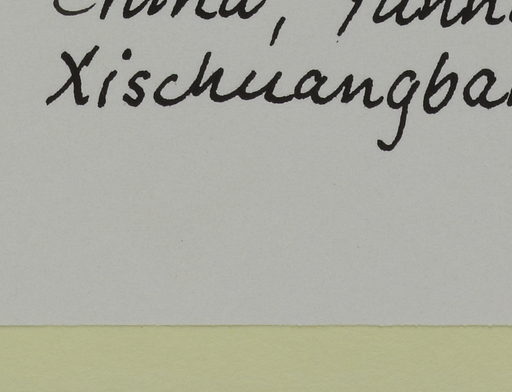 China, Yunn
Xischuangba